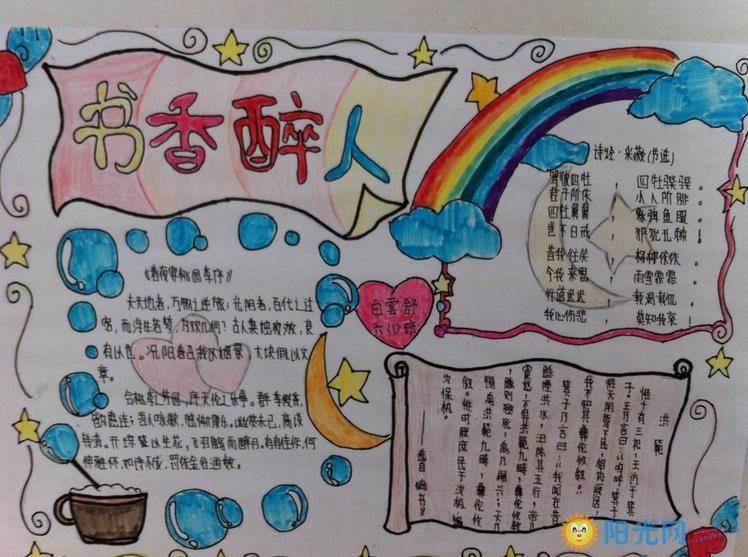 书香醉人
诗经·采薇(节选)
驾彼四牡，四牡骙骙。
君子所依，小人所腓。
四牡翼翼，象弭鱼服。
岂不日戒，玁狁孔棘！
昔我往矣，杨柳依依。
今我来思，雨雪霏霏。
行道迟迟，载渴载饥。
我心伤悲，莫知我哀！
《春夜宴桃园序》
夫天地者，万物之逆旅；光阴者，百代之过
客。而浮生若梦，为欢几何？古人秉烛夜游，良
有以也。况阳春召我以烟景，大块假以文
章。
会桃李之芳园，序天伦之乐事。群季俊秀，
皆为惠连；吾人咏歌，独惭康乐。幽赏未已，高谈
转清。开琼筵以坐花，飞羽觞而醉月。有佳作，何
伸雅怀。如诗不成，罚依金谷酒数。
白雲舒
六(2)班
洪範
惟十有三祀，王访于箕
子。王乃言曰：
我不知其彝伦攸叙。
箕子乃言曰：我闻在昔
鲧堙洪水，汩陈其五行，帝乃
震怒，不畀洪範九畴，彝伦攸斁
鲧则殛死，禹乃嗣兴；天乃
锡禹洪範九畴，彝伦攸
叙。
——选自《尚书》
阳光网